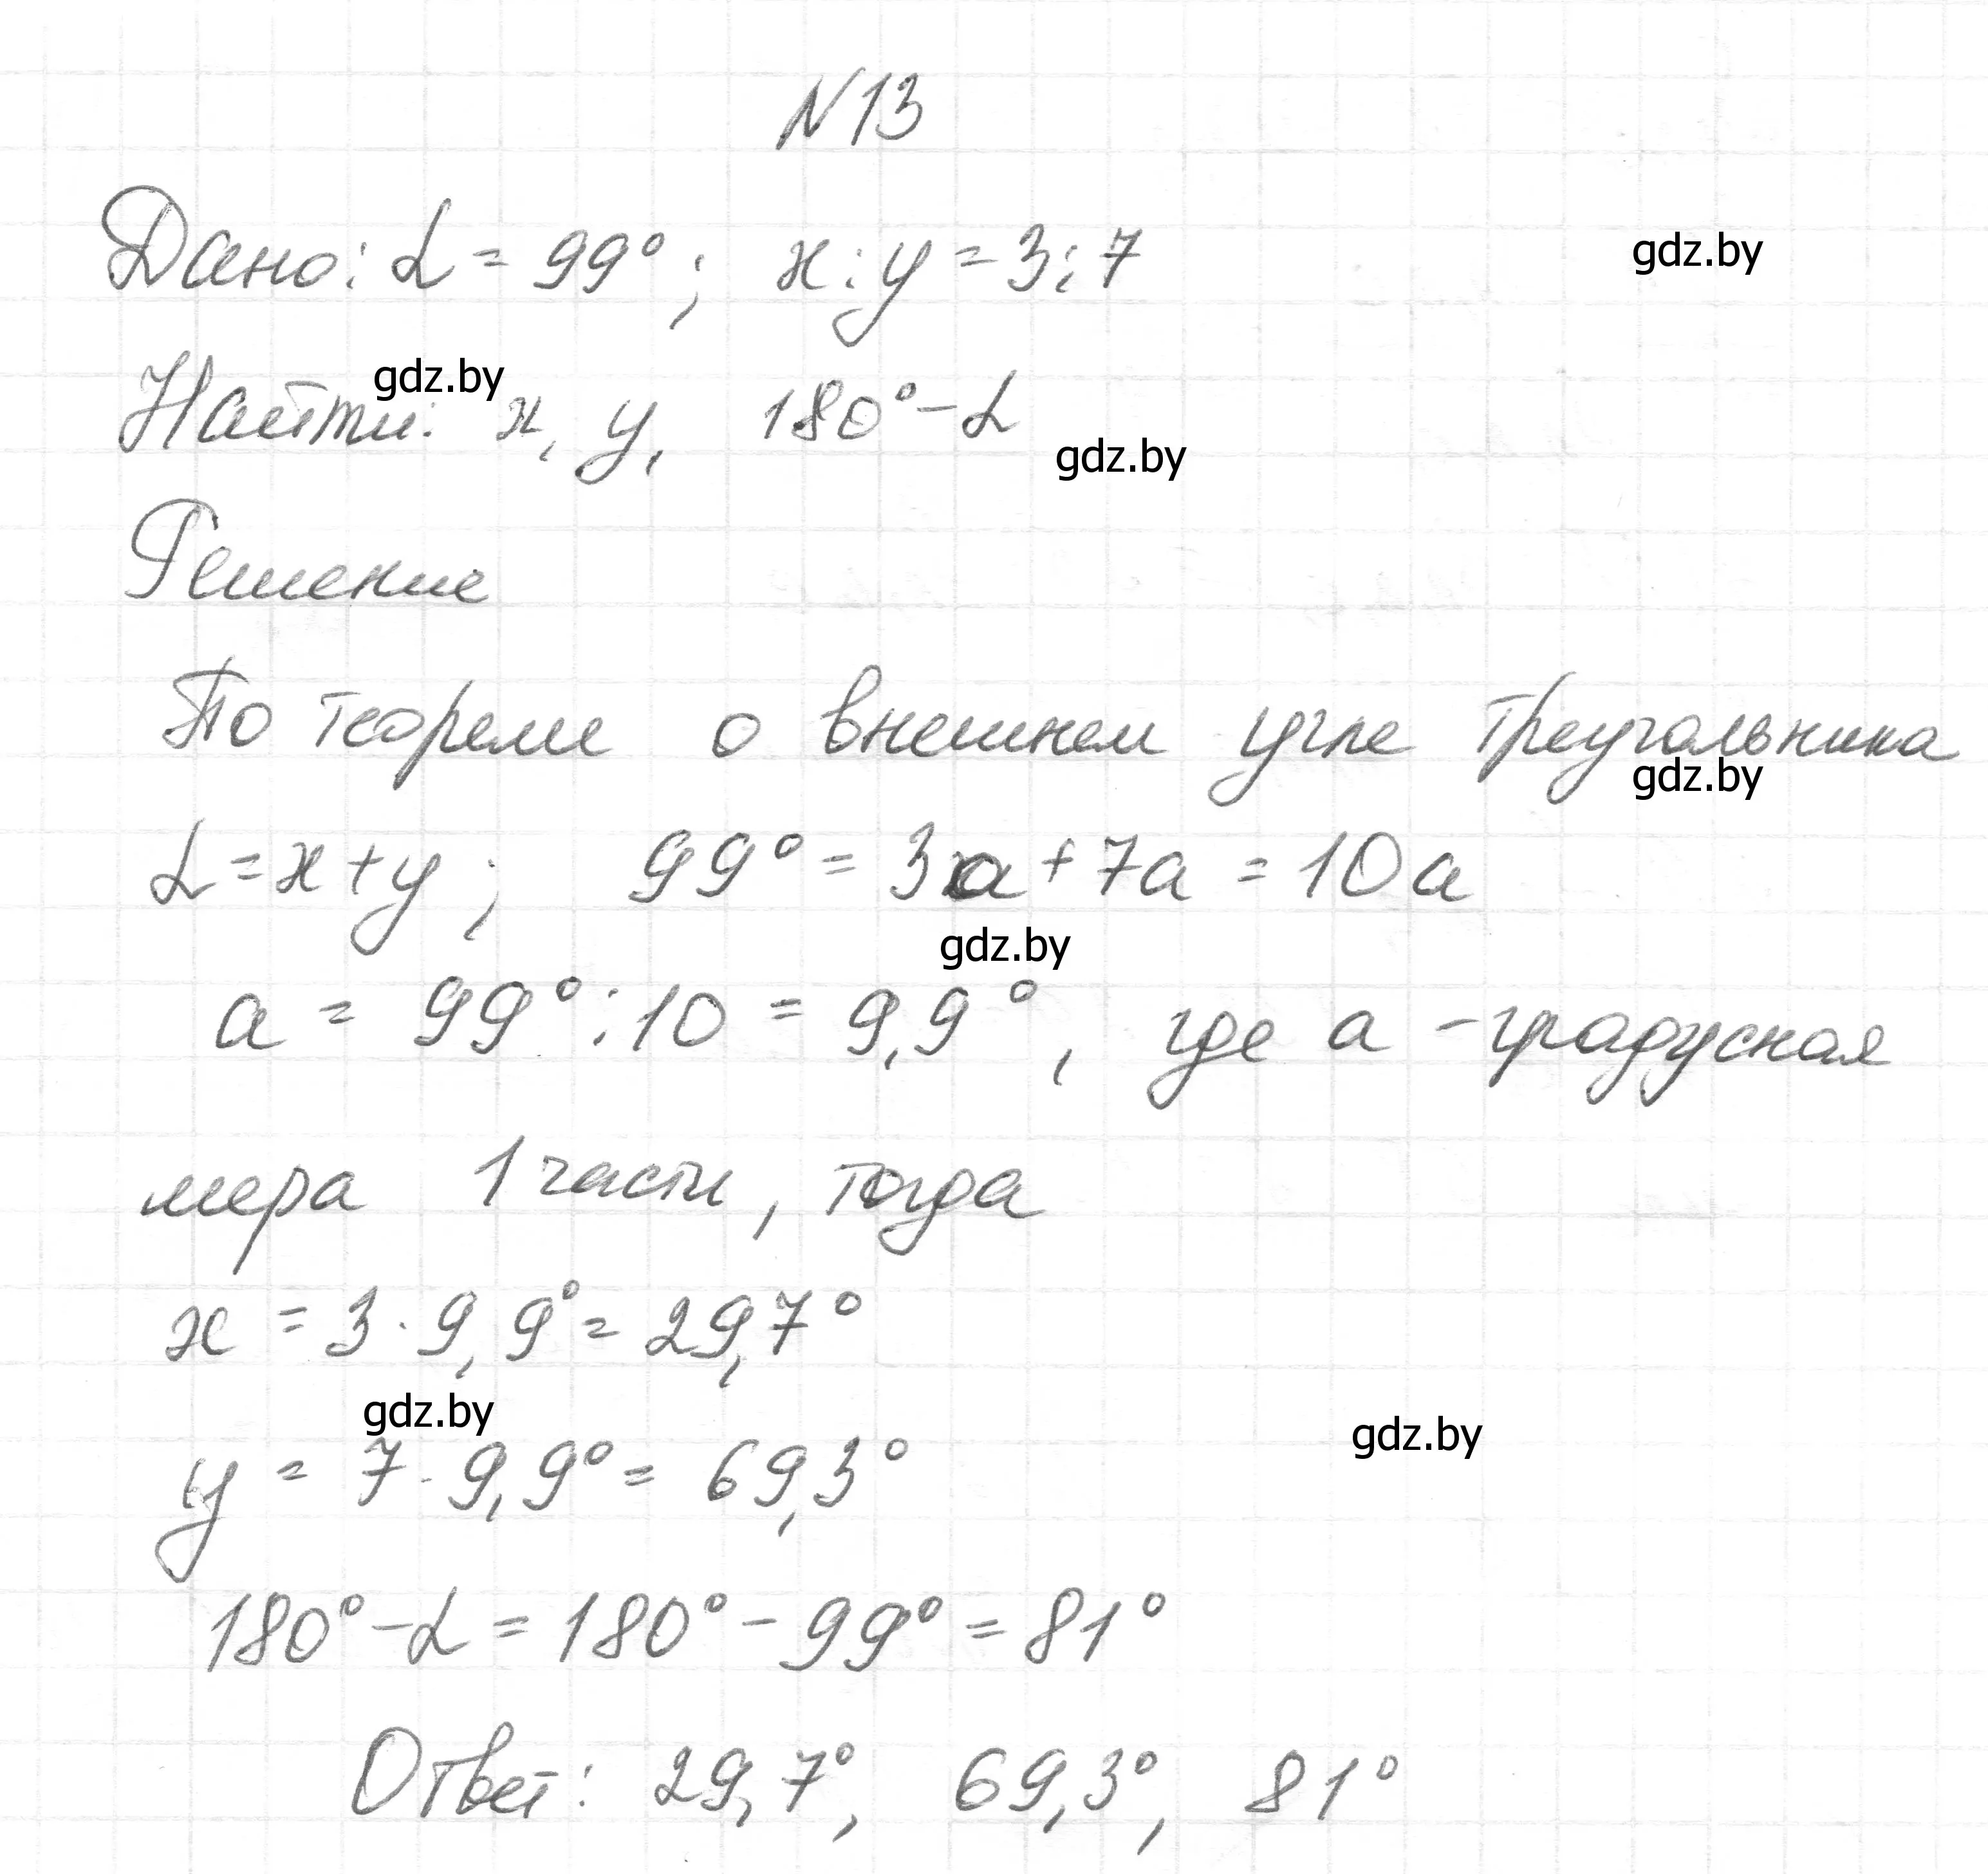 N13
Дано: α = 99°; x : y = 3 : 7
gdz.by
gdz.by
Найти: x, y, 180° - α
gdz.by
Решение
По теореме о внешнем угле треугольника
gdz.by
α = x + y; 99° = 3a + 7a = 10a
gdz.by
a = 99° : 10 = 9,9°, где a - градусная
мера 1 части, тогда
x = 3 · 9,9° = 29,7°
gdz.by
gdz.by
y = 7 · 9,9° = 69,3°
180° - α = 180° - 99° = 81°
Ответ: 29,7°, 69,3°, 81°